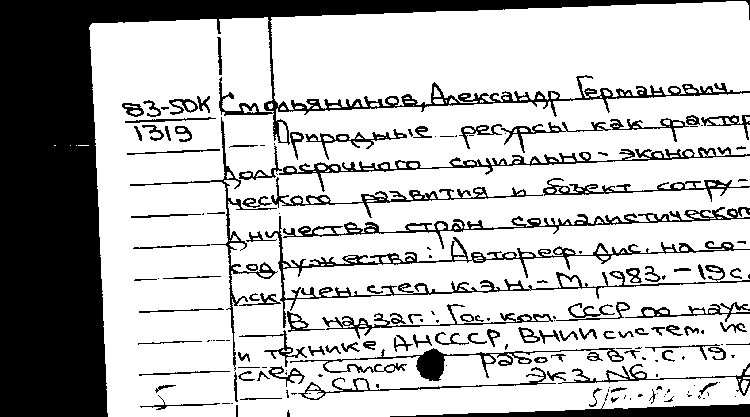 83-5DK Смольянинов, Александр Германович.
1319 Природные ресурсы как фактор
долгосрочного социально-экономи-
ческого развития и объект сотру-
дничества стран социалистического
содружества: Автореф. дис. на со-
иск. учен. степ. к.э.н. - М., 1983. - 19 с.
В надзаг.: Гос. ком. СССР по наук
и технике, АН СССР, ВНИИ систем. ис
след. Список работ авт.: с. 19.
ДСП. Экз. №6.
5